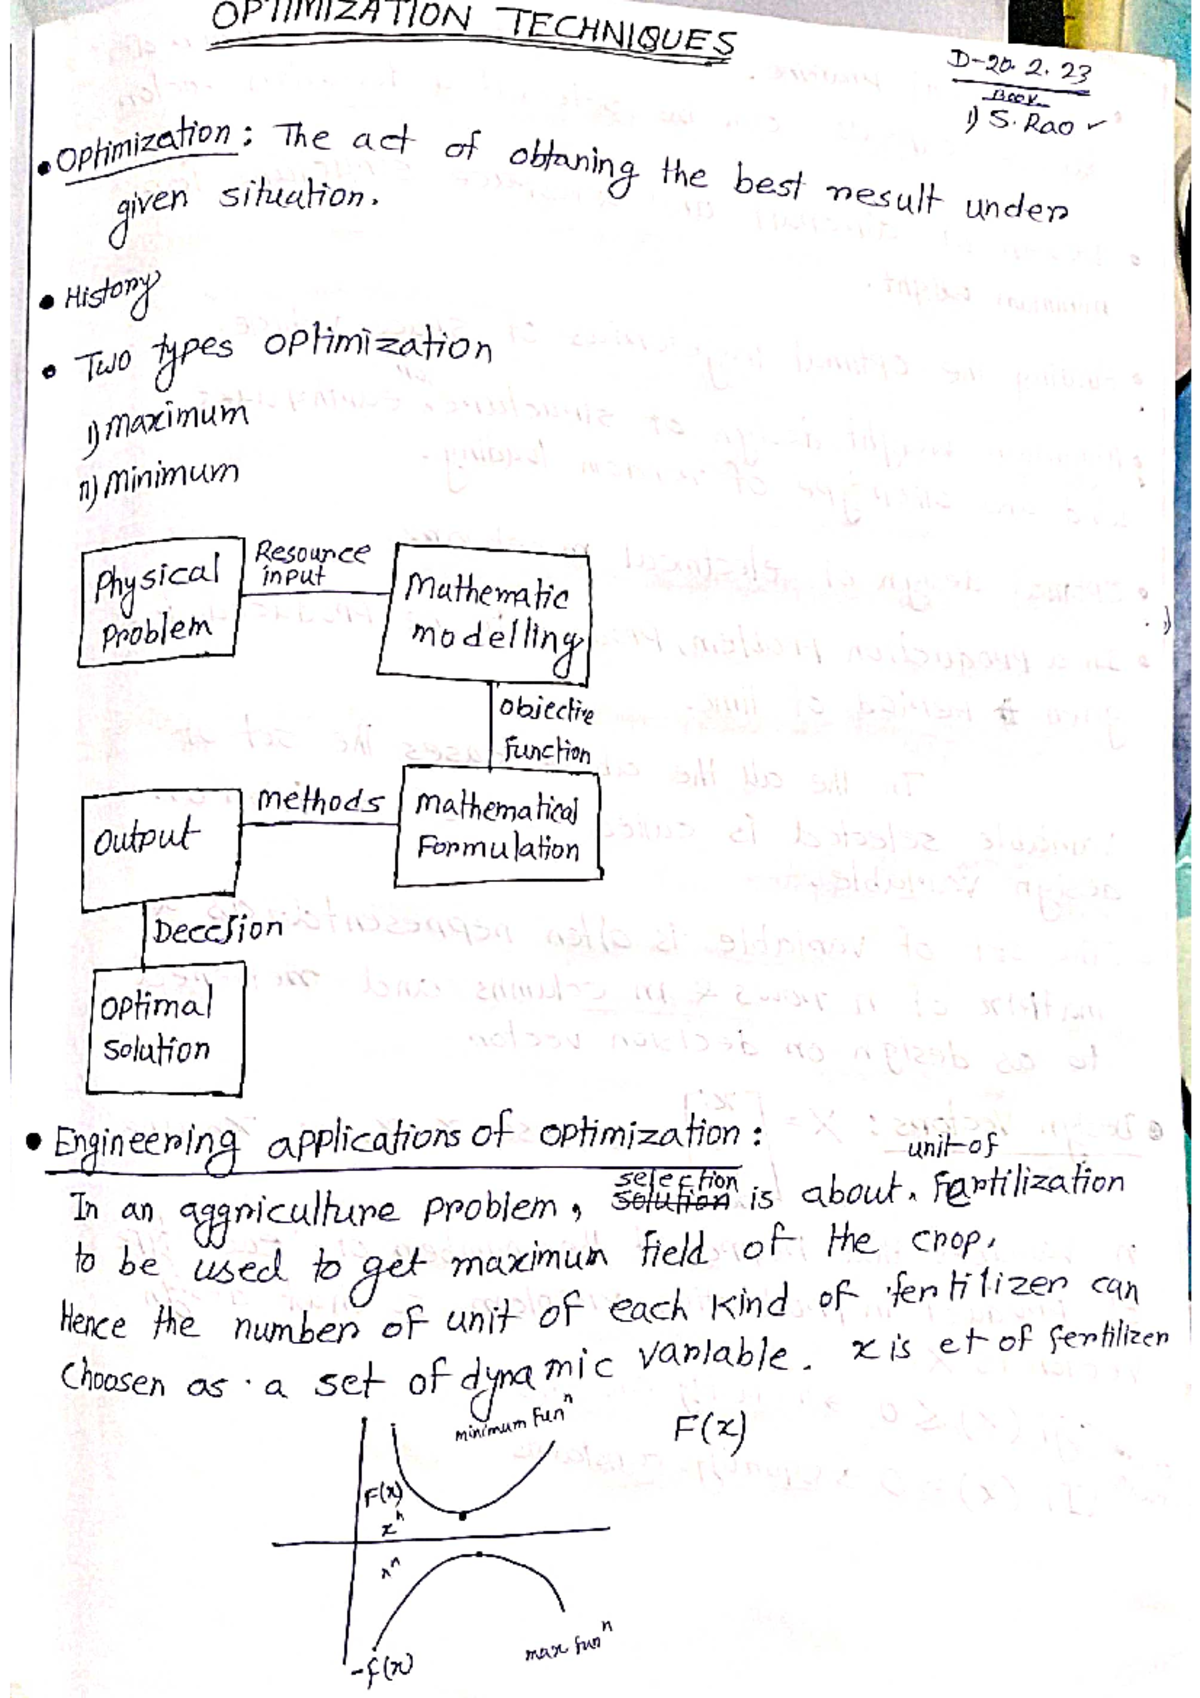 OPTIMIZATION TECHNIQUES
D-20.2.23
Book
i) S. Rao ✓
• Optimization : The act of obtaning the best result under
given situation.
• History
• Two types optimization
i) Maximum
ii) Minimum
Physical
Problem
Resource
input
Mathematic
modelling
objective
function
Output
methods
Mathematical
Formulation
Decesion
Optimal
Solution
• Engineering applications of optimization :
unit of
selection
In an aggriculture problem, solution is about, Fertilization
to be used to get maximum field of the crop.
Hence the number of unit of each kind of fertilizer can
choosen as a set of dynamic variable. x is et of fertilizer
minimum funⁿ
F(x)
F(x)
xⁿ
xⁿ
max funⁿ
-f(x)